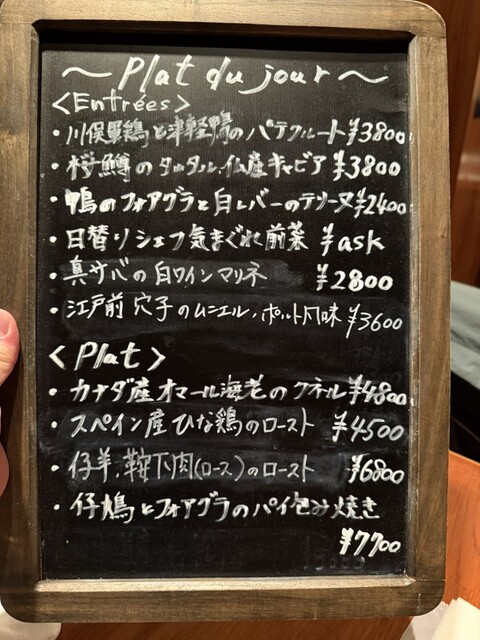 ~ Plat du jour ~
<Entrées>
・川俣軍鶏と津軽鴨のパテクルート ¥3800
・桜鱒のタルタル,仏産キャビア ¥3800
・鴨のフォアグラと白レバーのテリーヌ ¥2400
・日替りシェフ気まぐれ前菜 ¥ask
・真サバの白ワインマリネ ¥2800
・江戸前穴子のムニエル,ポルト風味 ¥3600
<Plat>
・カナダ産オマール海老のクネル ¥4800
・スペイン産ひな鶏のロースト ¥4500
・仔羊,鞍下肉(ロース)のロースト ¥6800
・仔鳩とフォアグラのパイ包み焼き
¥7700